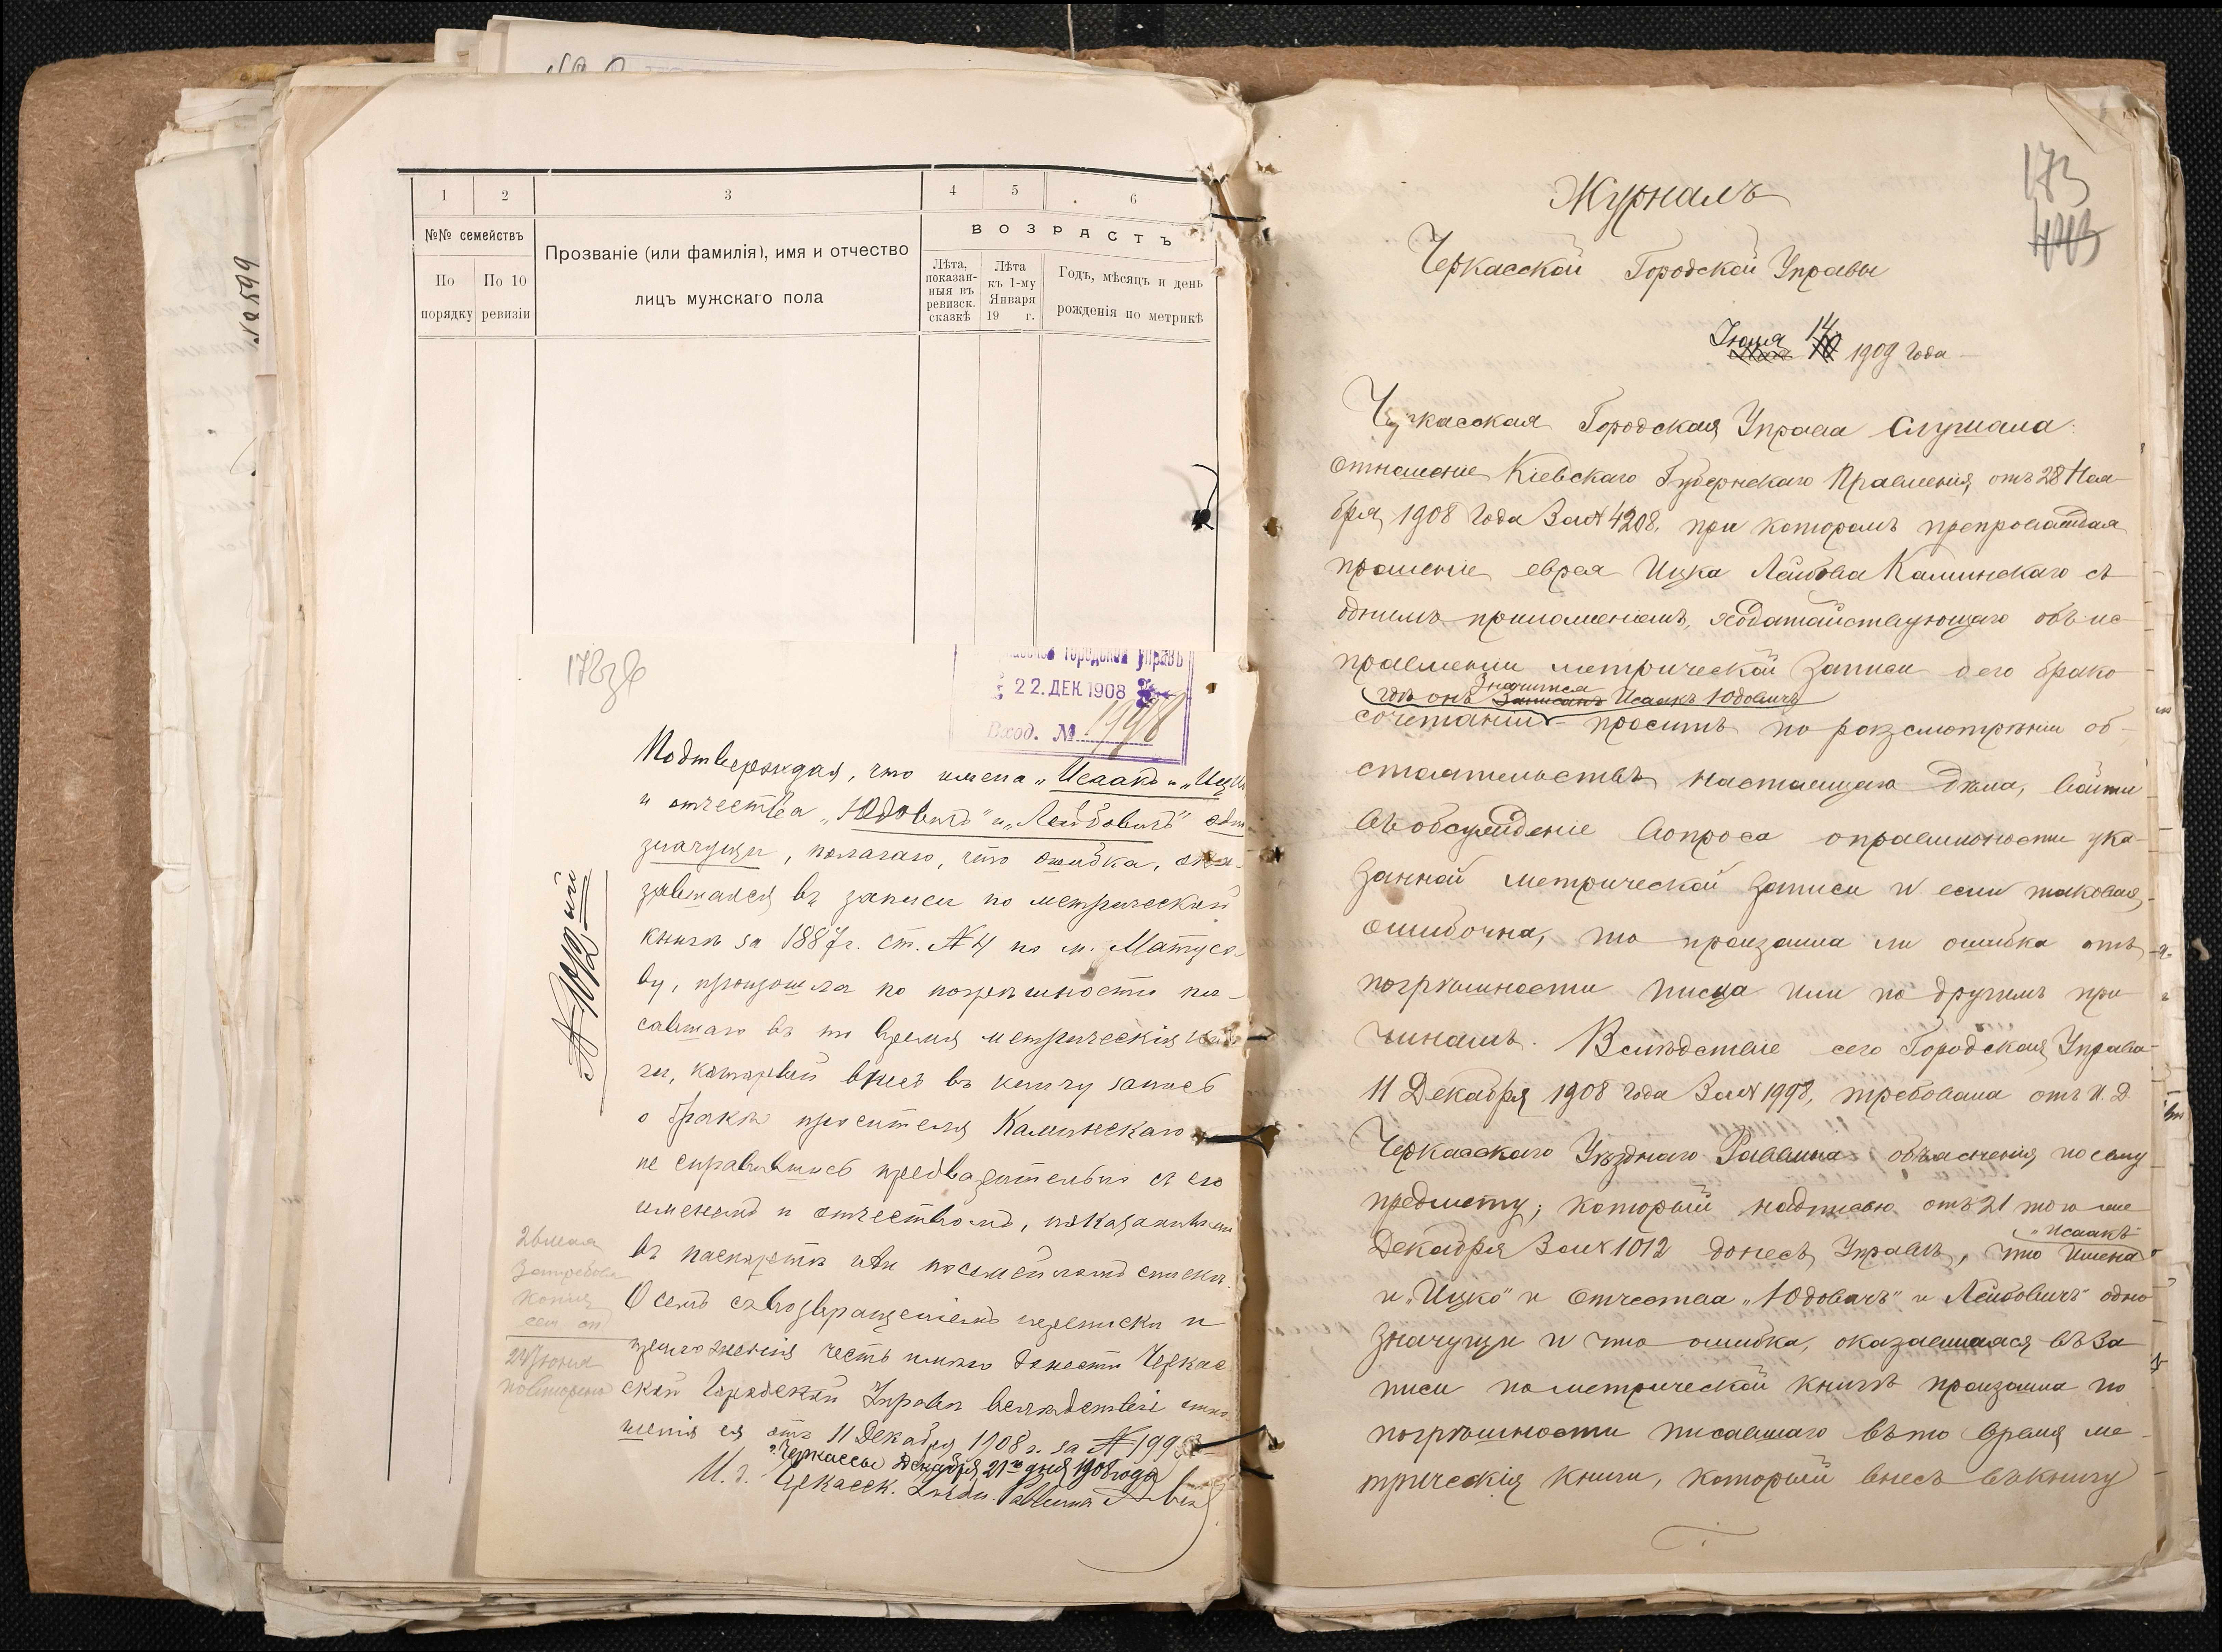 № 599
1
2
3
4
5
6
№№ семействъ
По порядку
По 10 ревизіи
Прозваніе (или фамилія), имя и отчество
лицъ мужскаго пола
ВОЗРАСТЪ
Лѣта, показан-ныя въ ревизск. сказкѣ
Лѣта къ 1-му Января 19 г.
Годъ, мѣсяцъ и день
рожденія по метрикѣ
Городской Управѣ
22. ДЕК 1908
Вход. № 1998
Подтверждая, что имена „Исаакъ" и „Иц
и отчества „Юдовичъ" и „Лейбовичъ" одно
значущи, полагаю, что ошибка, ока-
завшаяся въ записи по метрической
книгѣ за 1887 г. ст. № 4 по м. Матусо-
ву, произошла по погрѣшности пи-
савшаго въ то время метрическія кни-
ги, который внесъ въ книгу запись
о бракѣ просителя Каминскаго
не справившись предварительно съ его
именемъ и отчествомъ, показаннымъ
въ паспортѣ или посемейномъ спискѣ.
О семъ съ возвращеніемъ переписки и
приложенія честь имѣю донести Черкас
ской Городской Управѣ вслѣдствіе отно
шенія ея отъ 11 Декабря 1908 г. за № 1998
г. Черкассы Декабря 21го дня 1908 года
И. д. Черкасск. Раввина
№ 1012
26 мая
Затребова
копія
сем. сп.
24 Іюня
повторено
173
Журналъ
Черкасской Городской Управы
Іюля 14 1909 года
Черкасская Городская Управа Слушала:
отношеніе Кіевскаго Губернскаго Правленія, отъ 28 Ноя-
бря 1908 года За № 4208, при которомъ препровождая
прошеніе еврея Ицка Лейбова Каминскаго съ
однимъ приложеніемъ, ходатайствующаго объ ис
правленіи метрической записи о его брако
гдѣ онъ Значится Записанъ Исаакъ Юдовичъ
сочетаніи – проситъ по разсмотрѣніи об-
стоятельствъ настоящаго дѣла, войти
въ обсужденіе вопроса о правильности ука-
занной метрической записи и если таковая
ошибочна, то произошла ли ошибка отъ
погрѣшности писца или по другимъ при
чинамъ. Вслѣдствіе сего Городская Управа
11 Декабря 1908 года За № 1998, требовала отъ И. Д.
Черкасскаго Уѣзднаго Раввина объясненія по сему
предмету, который надписью отъ 21 того же
Декабря За № 1012 донесъ Управѣ, что Имена „Исаакъ"
и „Ицко" и Отчества „Юдовичъ" и Лейбовичъ" одно
значущи и что ошибка, оказавшаяся въ За
писи по метрической книгѣ произошла по
погрѣшности писавшаго въ то время ме
трическія книги, который внесъ въ книгу